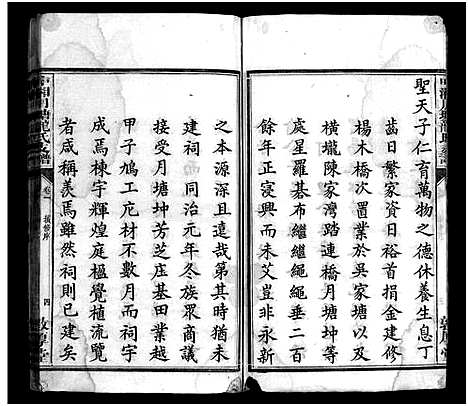 聖天子仁育萬物之德休養生息丁
齒日繁家資日裕首捐金建修
楊木橋義渡於吳家塘以及
壙隴陳家灣踏連橋月塘坤等
處星羅碁布繼繼繩繩垂二百
餘年正寖興而未艾豈非永新
之本源深且遠哉第其時猶未
建祠 同治元年冬族眾商議
接受月塘坤芳芝庄基田業越
甲子鳩工庀材不數月而祠宇
成焉棟宇輝煌庭楹覺植流覽
者咸稱美焉雖然祠則已建矣
中湘月塘龍氏支譜
卷一
續修序
四
敦厚堂